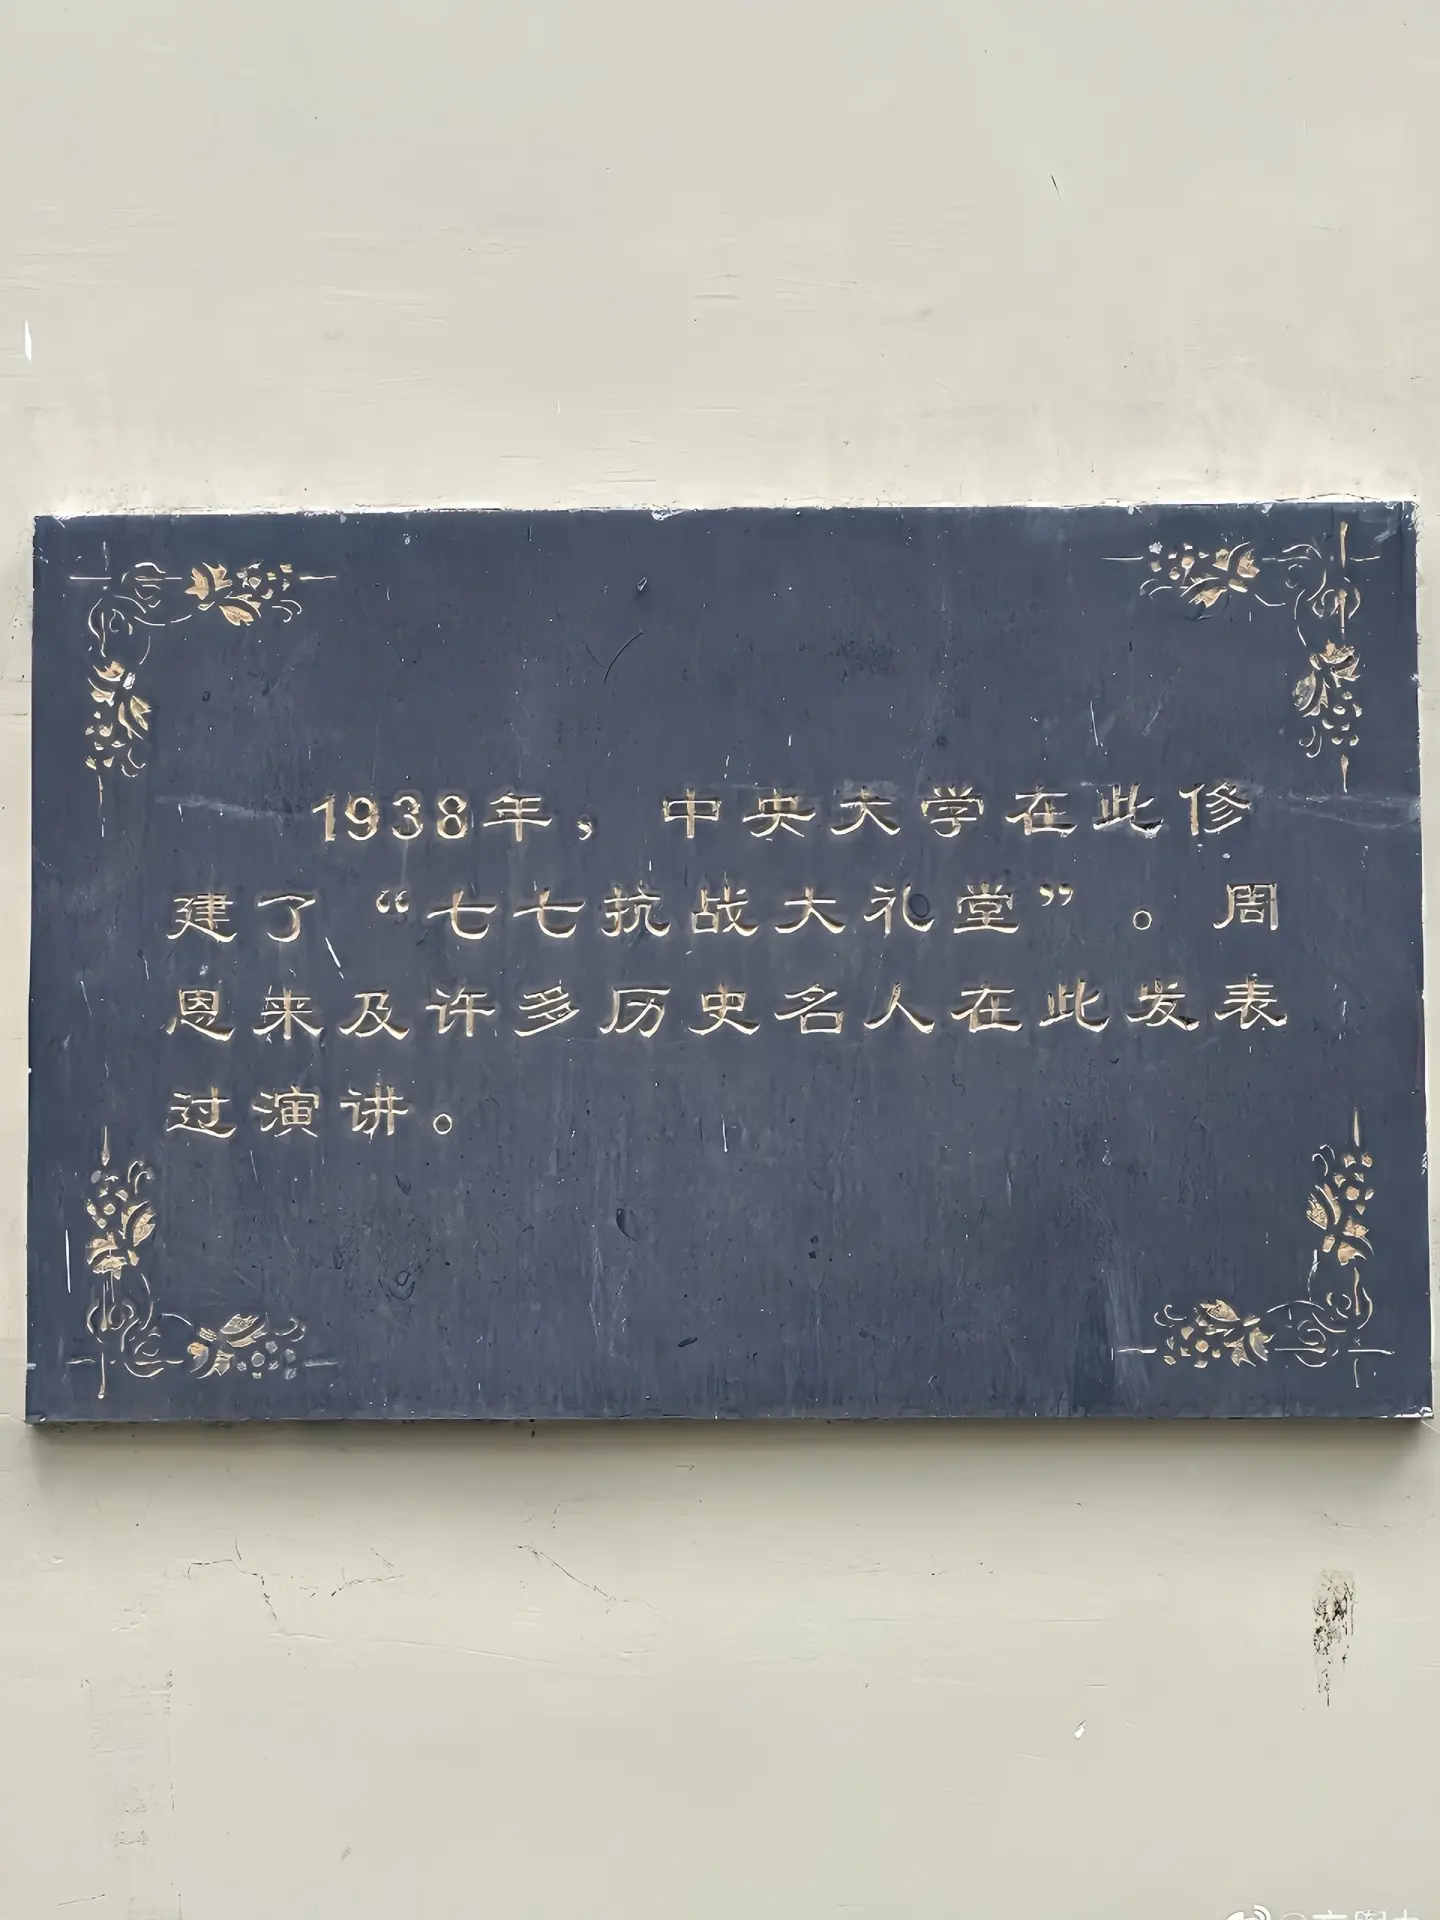 1938年，中央大学在此修
建了“七七抗战大礼堂”。周
恩来及许多历史名人在此发表
过演讲。